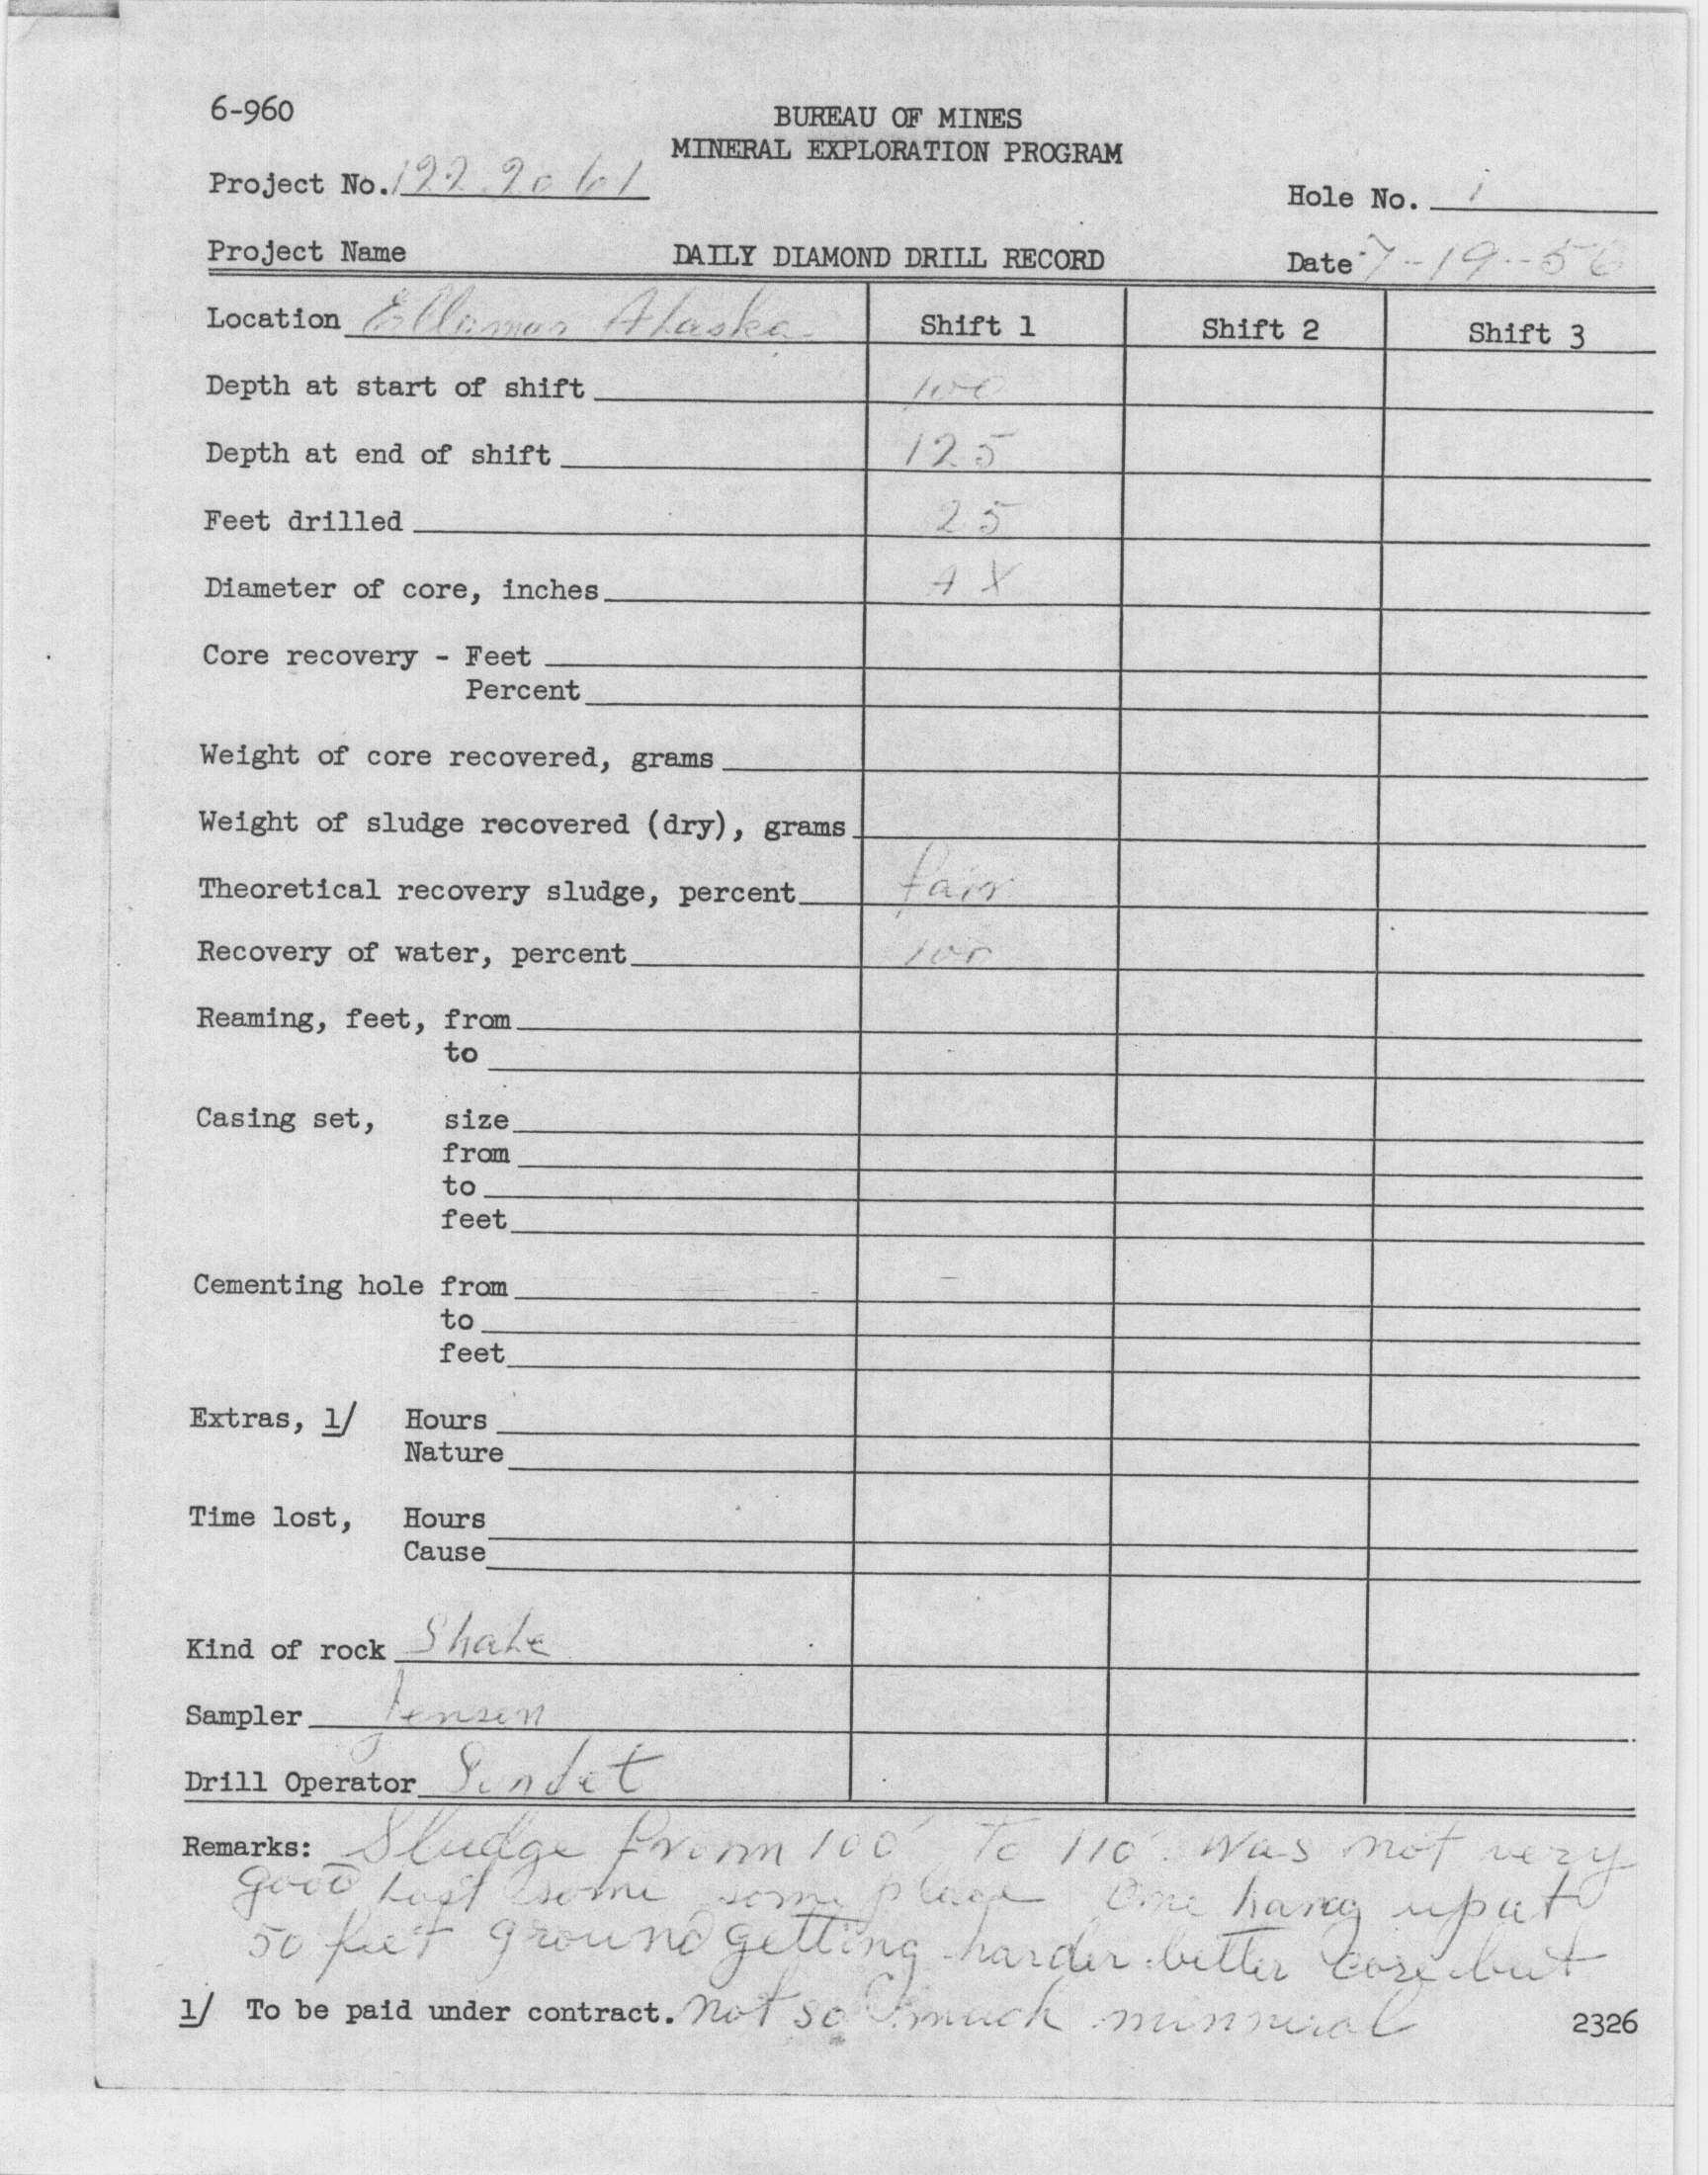 6-960
BUREAU OF MINES
MINERAL EXPLORATION PROGRAM
Project No. 122.2061
Hole No. 1
Project Name DAILY DIAMOND DRILL RECORD Date 7-19-56
Location Ellamar Alaska Shift 1 Shift 2 Shift 3
Depth at start of shift 100
Depth at end of shift 125
Feet drilled 25
Diameter of core, inches AX
Core recovery - Feet
Percent
Weight of core recovered, grams
Weight of sludge recovered (dry), grams
Theoretical recovery sludge, percent fair
Recovery of water, percent 100
Reaming, feet, from
to
Casing set, size
from
to
feet
Cementing hole from
to
feet
Extras, 1/ Hours
Nature
Time lost, Hours
Cause
Kind of rock Shale
Sampler Jensen
Drill Operator
Remarks: Sludge from 100' to 110' was not very
good Lost some some place one hang up at
50 feet ground getting harder better core but
1/ To be paid under contract. not so much minneral 2326